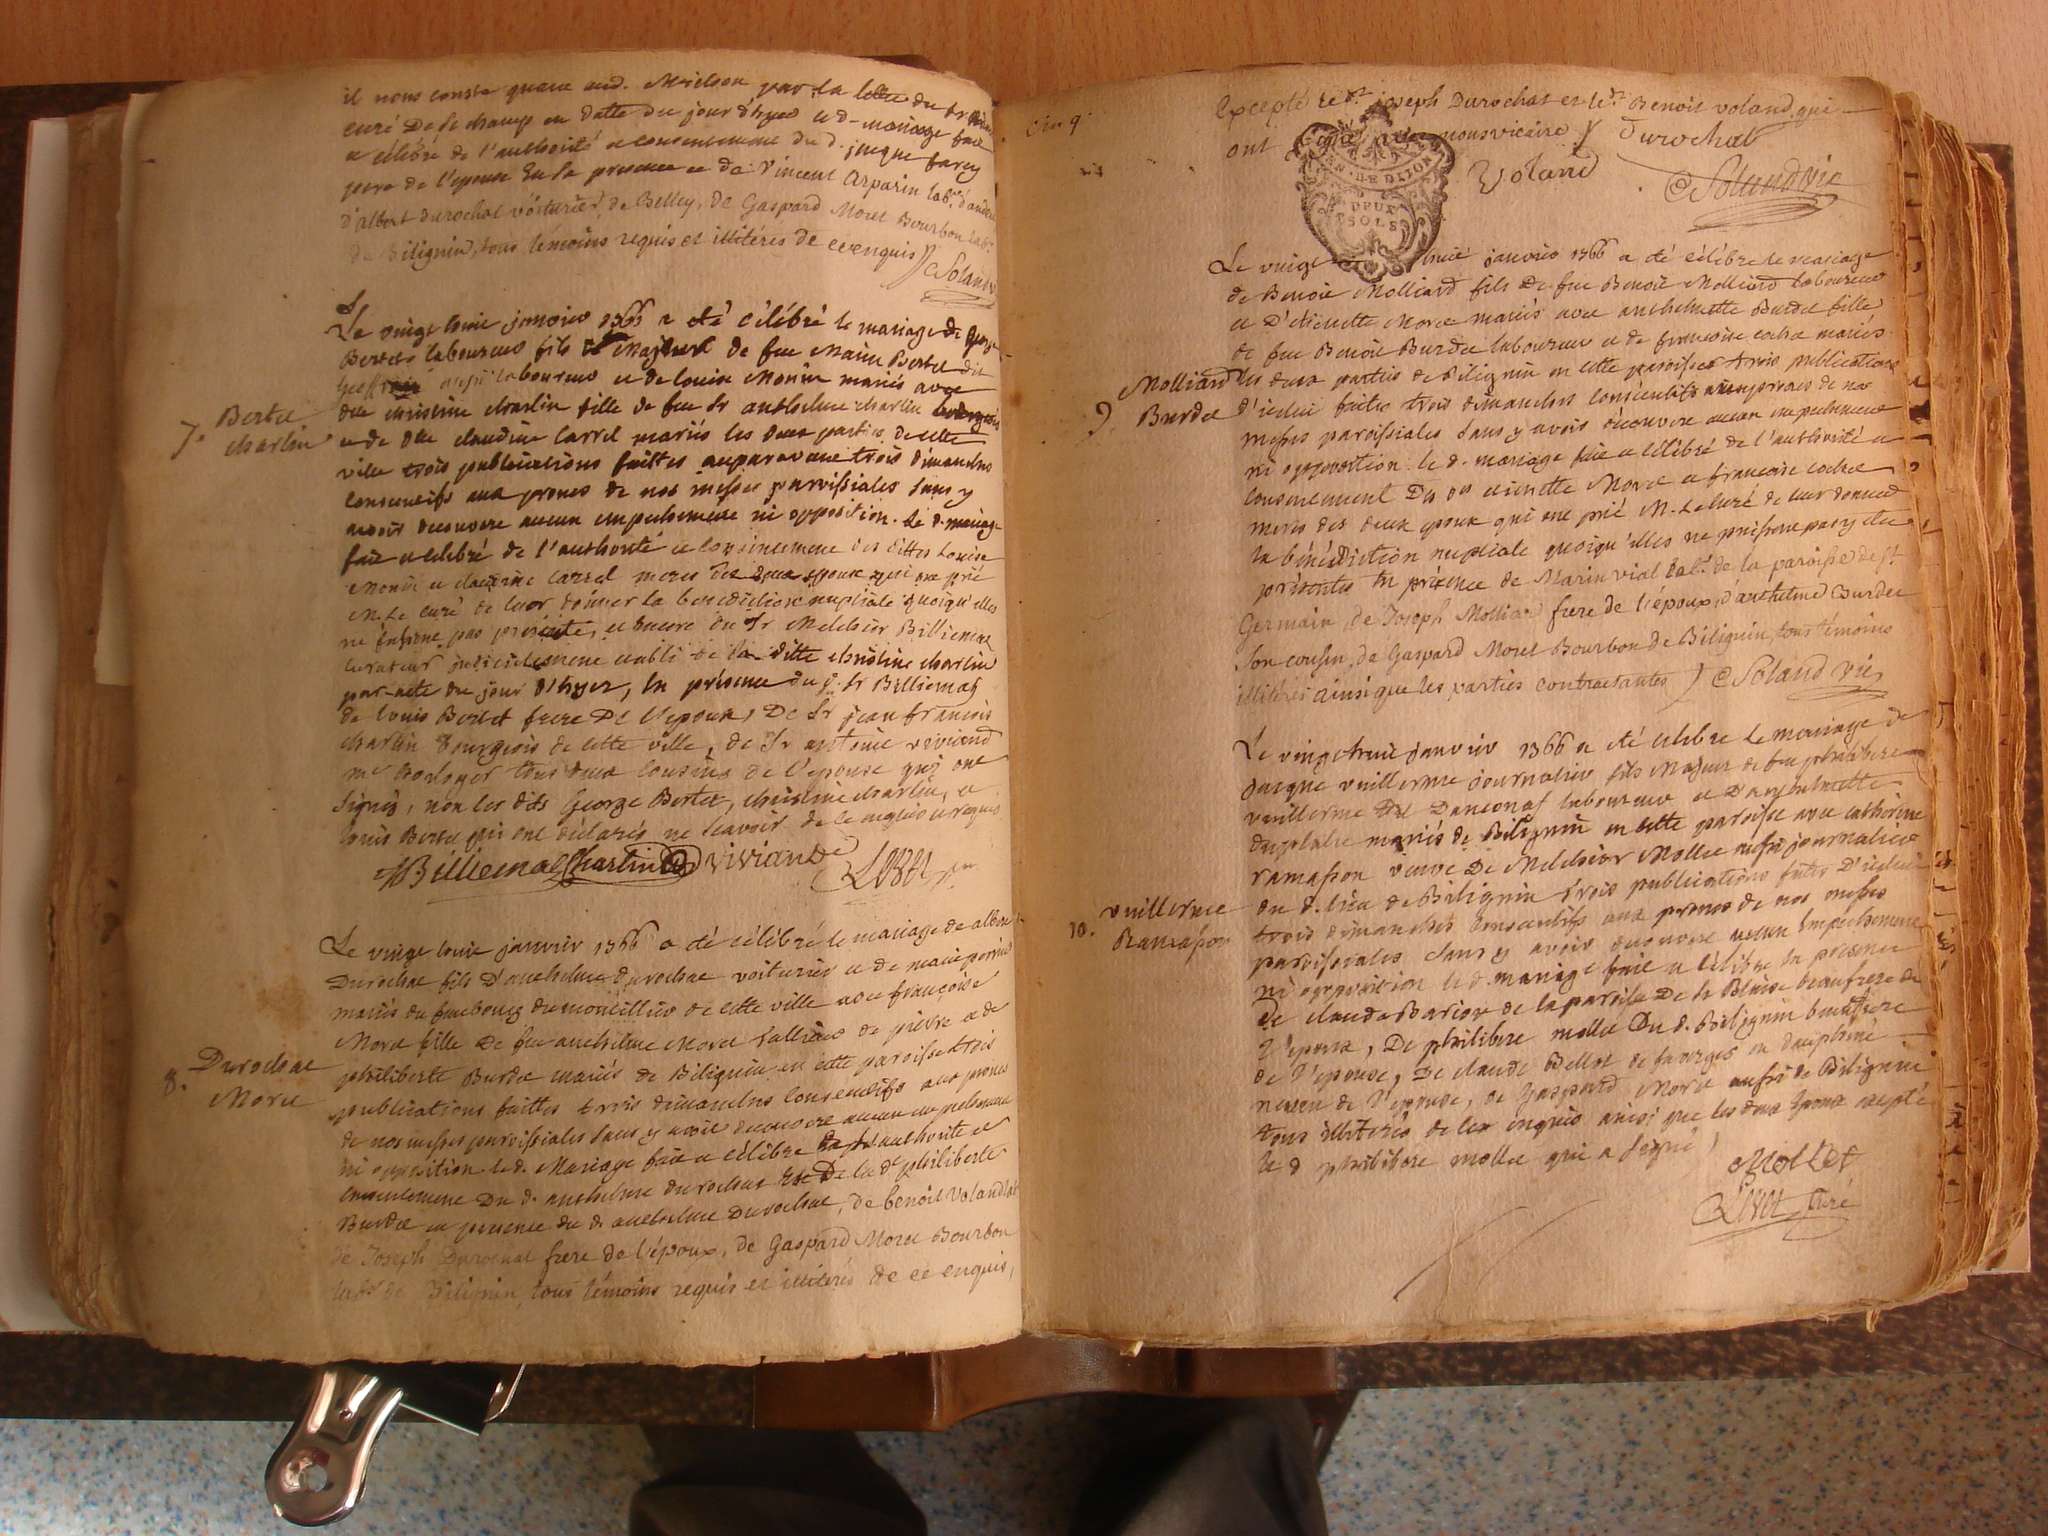 il nous conste par la lettre du
curé de St champ en datte du jour d'hyer le d. mariage fait
et célébré de l'authorité et consentement du d. jacque
pere de l'epouse En la presence de Vincent Arparin lab.r
d'albert durochat voiturier, de Belley, de Gaspard Moret Bourbon lab.r
de Bilignin, tous témoins requis et illitérés de ce enquis Soland
Le vingt huit janvier 1766 a été célébré le mariage de George
Bertet laboureur fils Majeur de feu Marin Bertet dit
laboureur et de louise Monin mariés avec
dlle christine charlin fille de feu Sr anthelme charlin
et de dlle claudine Carrel mariés les deux parties de cette
ville trois publications faittes auparavant trois dimanches
consecutifs aux prones de nos messes paroissiales sans y
avoir decouvert aucun empechement ni opposition. le d. mariage
fait et celebré de l'authorité et consentement des dittes Louise
Monin et claudine carrel meres des deux epoux qui ont prié
M. Le curé de leur donner la benediction nuptiale quoiqu'elles
ne fussent pas présentes, et encore du Sr Melchior Billiemaz
curateur judiciellement etabli de la ditte christine charlin
par acte du jour d'hyer, En présence du d. Sr Billiemaz
de louis Bertet frere De l'epoux, De Sr jean francois
charlin bourgeois de cette ville, de Sr antoine viviand
me horloger tous deux cousins de l'epouse qui ont
signés, non les dits George Bertet, christine charlin, et
louis Bertet qui ont déclarés ne scavoir de ce enquis et requis
Billiemaz Charlin Viviand
7. Bertet
charlin
Le vingt huit janvier 1766 a été célébré le mariage de albert
Durochat fils D'anthelme durochat voiturier et de marie perrin
mariés du faubourg du de cette ville avec françoise
Moret fille De feu anthelme Moret de pierre et de
philiberte Burdet mariés de Bilignin en cette paroisse trois
publications faittes trois dimanches consecutifs aux prones
de nos messes paroissiales sans y avoir decouvert aucun empechement
ni opposition le d. Mariage fait et célébré de l'authorité et
consentement Du d. anthelme durochat et De la de philiberte
Burdet en presence du d. anthelme Durochat, de benoit Voland
de Joseph Durochat frere de l'époux, de Gaspard Moret Bourbon
lab.r de Bilignin, tous témoins requis et illitérés de ce enquis,
8. Durochat
Moret
Excepté le d.t joseph Durochat et le d.t Benoit voland qui
ont signé avec nous vicaire Durochat
Voland Soland vic
GEN. DE DIJON
DEUX
SOLS
Le vingt huit janvier 1766 a été célébré le mariage
de Benoit Molliard fils De feu Benoit Molliard laboureur
et D'etiennette Moret mariés avec anthelmette Burdet fille
de feu Benoit Burdet laboureur et de francoise cochet mariés
les deux parties de Bilignin en cette paroisse trois publications
d'icelui faites trois dimanches consecutifs aux prones de nos
messes paroissiales sans y avoir decouvert aucun empechement
ni opposition le d. mariage fait et célébré de l'authorité et
consentement Des dts etiennette Moret et francoise cochet
meres des deux epoux qui ont prié M. Le curé de leur donner
la bénédiction nuptiale quoiqu'elles ne pussent pas y etre
présentes En présence de Marin vial lab.r de la paroisse de St
Germain, de Joseph Molliard frere de l'époux, d'anthelme Burdet
son cousin, de Gaspard Moret Bourbon de Bilignin, tous témoins
illitérés ainsi que les parties contractantes Soland vic
9. Molliard
Burdet
Le vingt huit janvier 1766 a été celebré Le mariage de
jacque vuillerme journalier fils Majeur de feu philibert
vuillerme laboureur et D'anthelmette
mariés de Bilignin en cette paroisse avec catherine
ramasson veuve De Melchior Mollet journalier
du d. lieu de Bilignin trois publications faites D'icelui
trois dimanches consecutifs aux prones de nos messes
paroissiales sans y avoir decouvert aucun Empechement
ni opposition le d. mariage fait et célébré En presence
De claude Barion de la paroisse De St Blaise beaufrere de
l'epoux, De philibert mollet Du d. Bilignin beaufrere
de l'epouse, De claude Bellot de faverges en dauphiné
neveu de l'epouse, de Gaspard Moret aussi de Bilignin
tous illiterés de ce enquis ainsi que les deux Epoux excepté
le d philibert mollet qui a signé
Mollet
curé
10. vuillerme
Ramasson